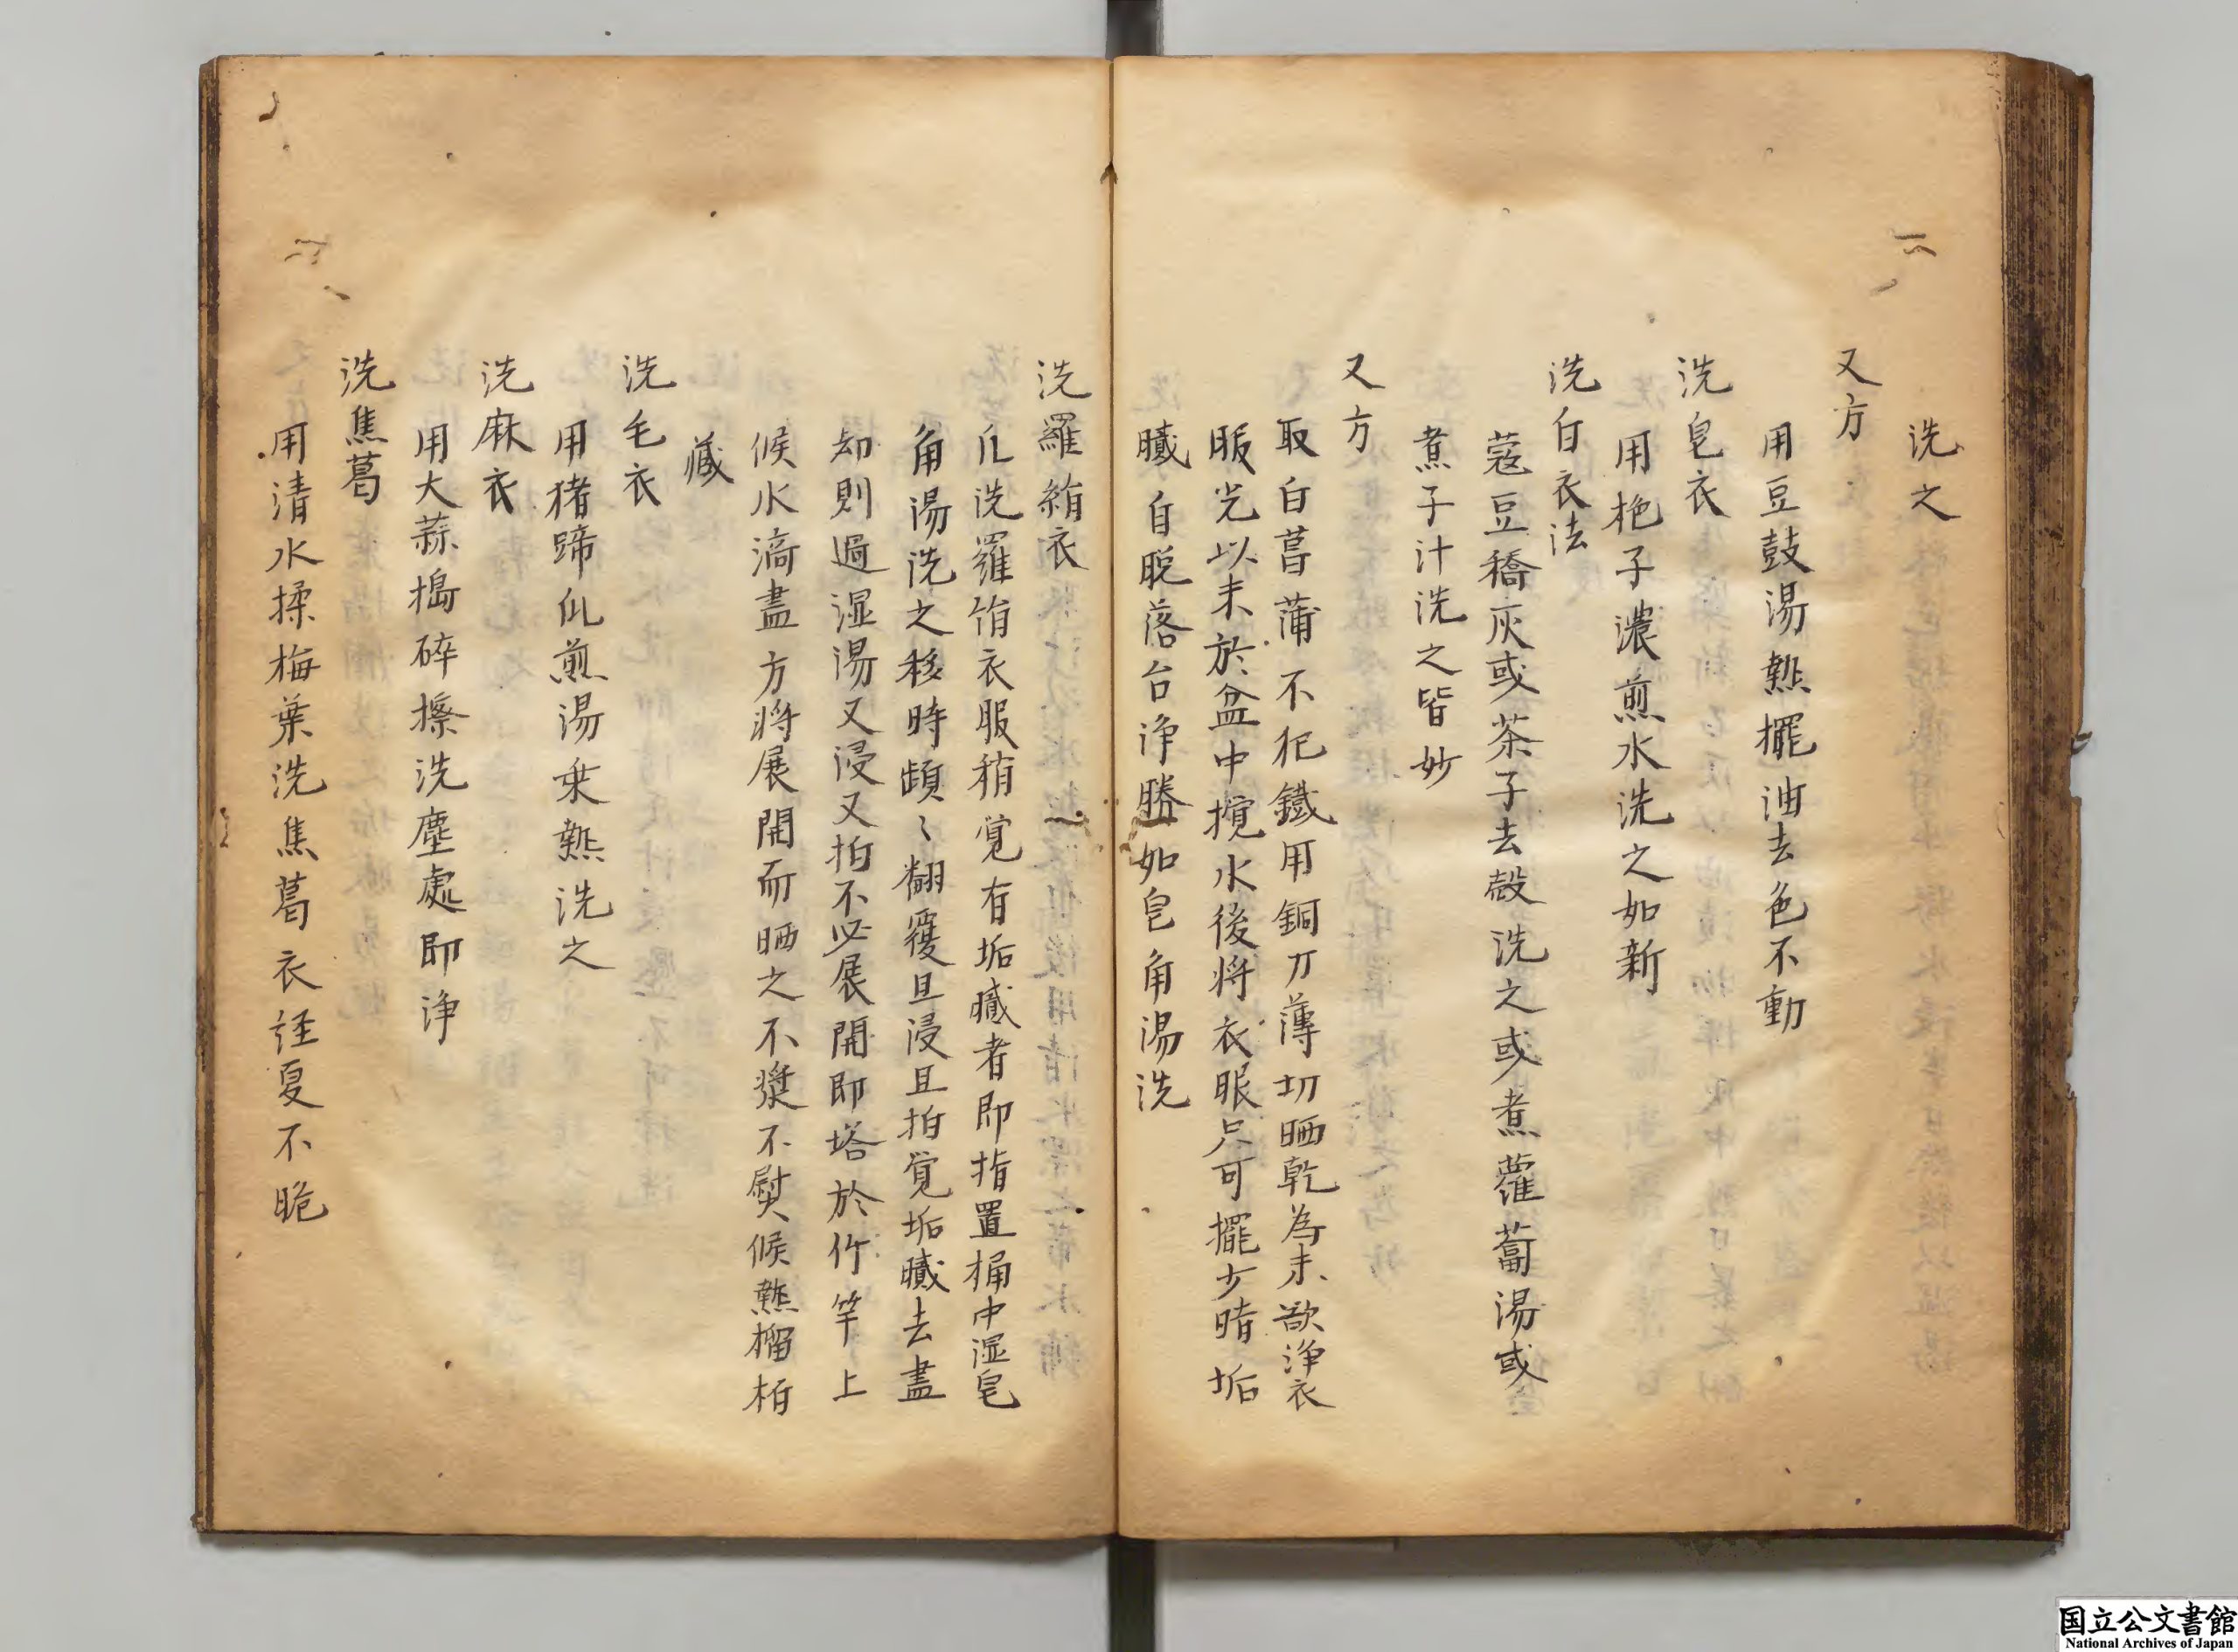 洗之
又方
用豆鼓湯熱擺油去色不動
洗皂衣
用梔子濃煎水洗之如新
洗白衣法
蔻豆稿灰或茶子去殼洗之或煮蘿蔔湯或
煮子汁洗之皆妙
又方
取白菖蒲不犯鐵用銅刀薄切晒乾為末欲浄衣
服光以末於盆中攪水後将衣服只可擺少時垢
膱自脱落台浄勝如皂角湯洗
洗羅絹衣
凡洗羅絹衣服稍覚有垢膱者即指置桶中湿皂
角湯洗之移時頻〻翻覆且浸且拍覚垢膱去盡
却則過湿湯又浸又拍不必展開即塔於竹竿上
候水滴盡方将展開而晒之不漿不熨候熱榴栢
藏
洗毛衣
用猪蹄爪煎湯乗熱洗之
洗麻衣
用大蒜搗碎擦洗塵處即浄
洗焦葛
用清水揉梅葉洗焦葛衣誙夏不脆
国立公文書館
National Archives of Japan